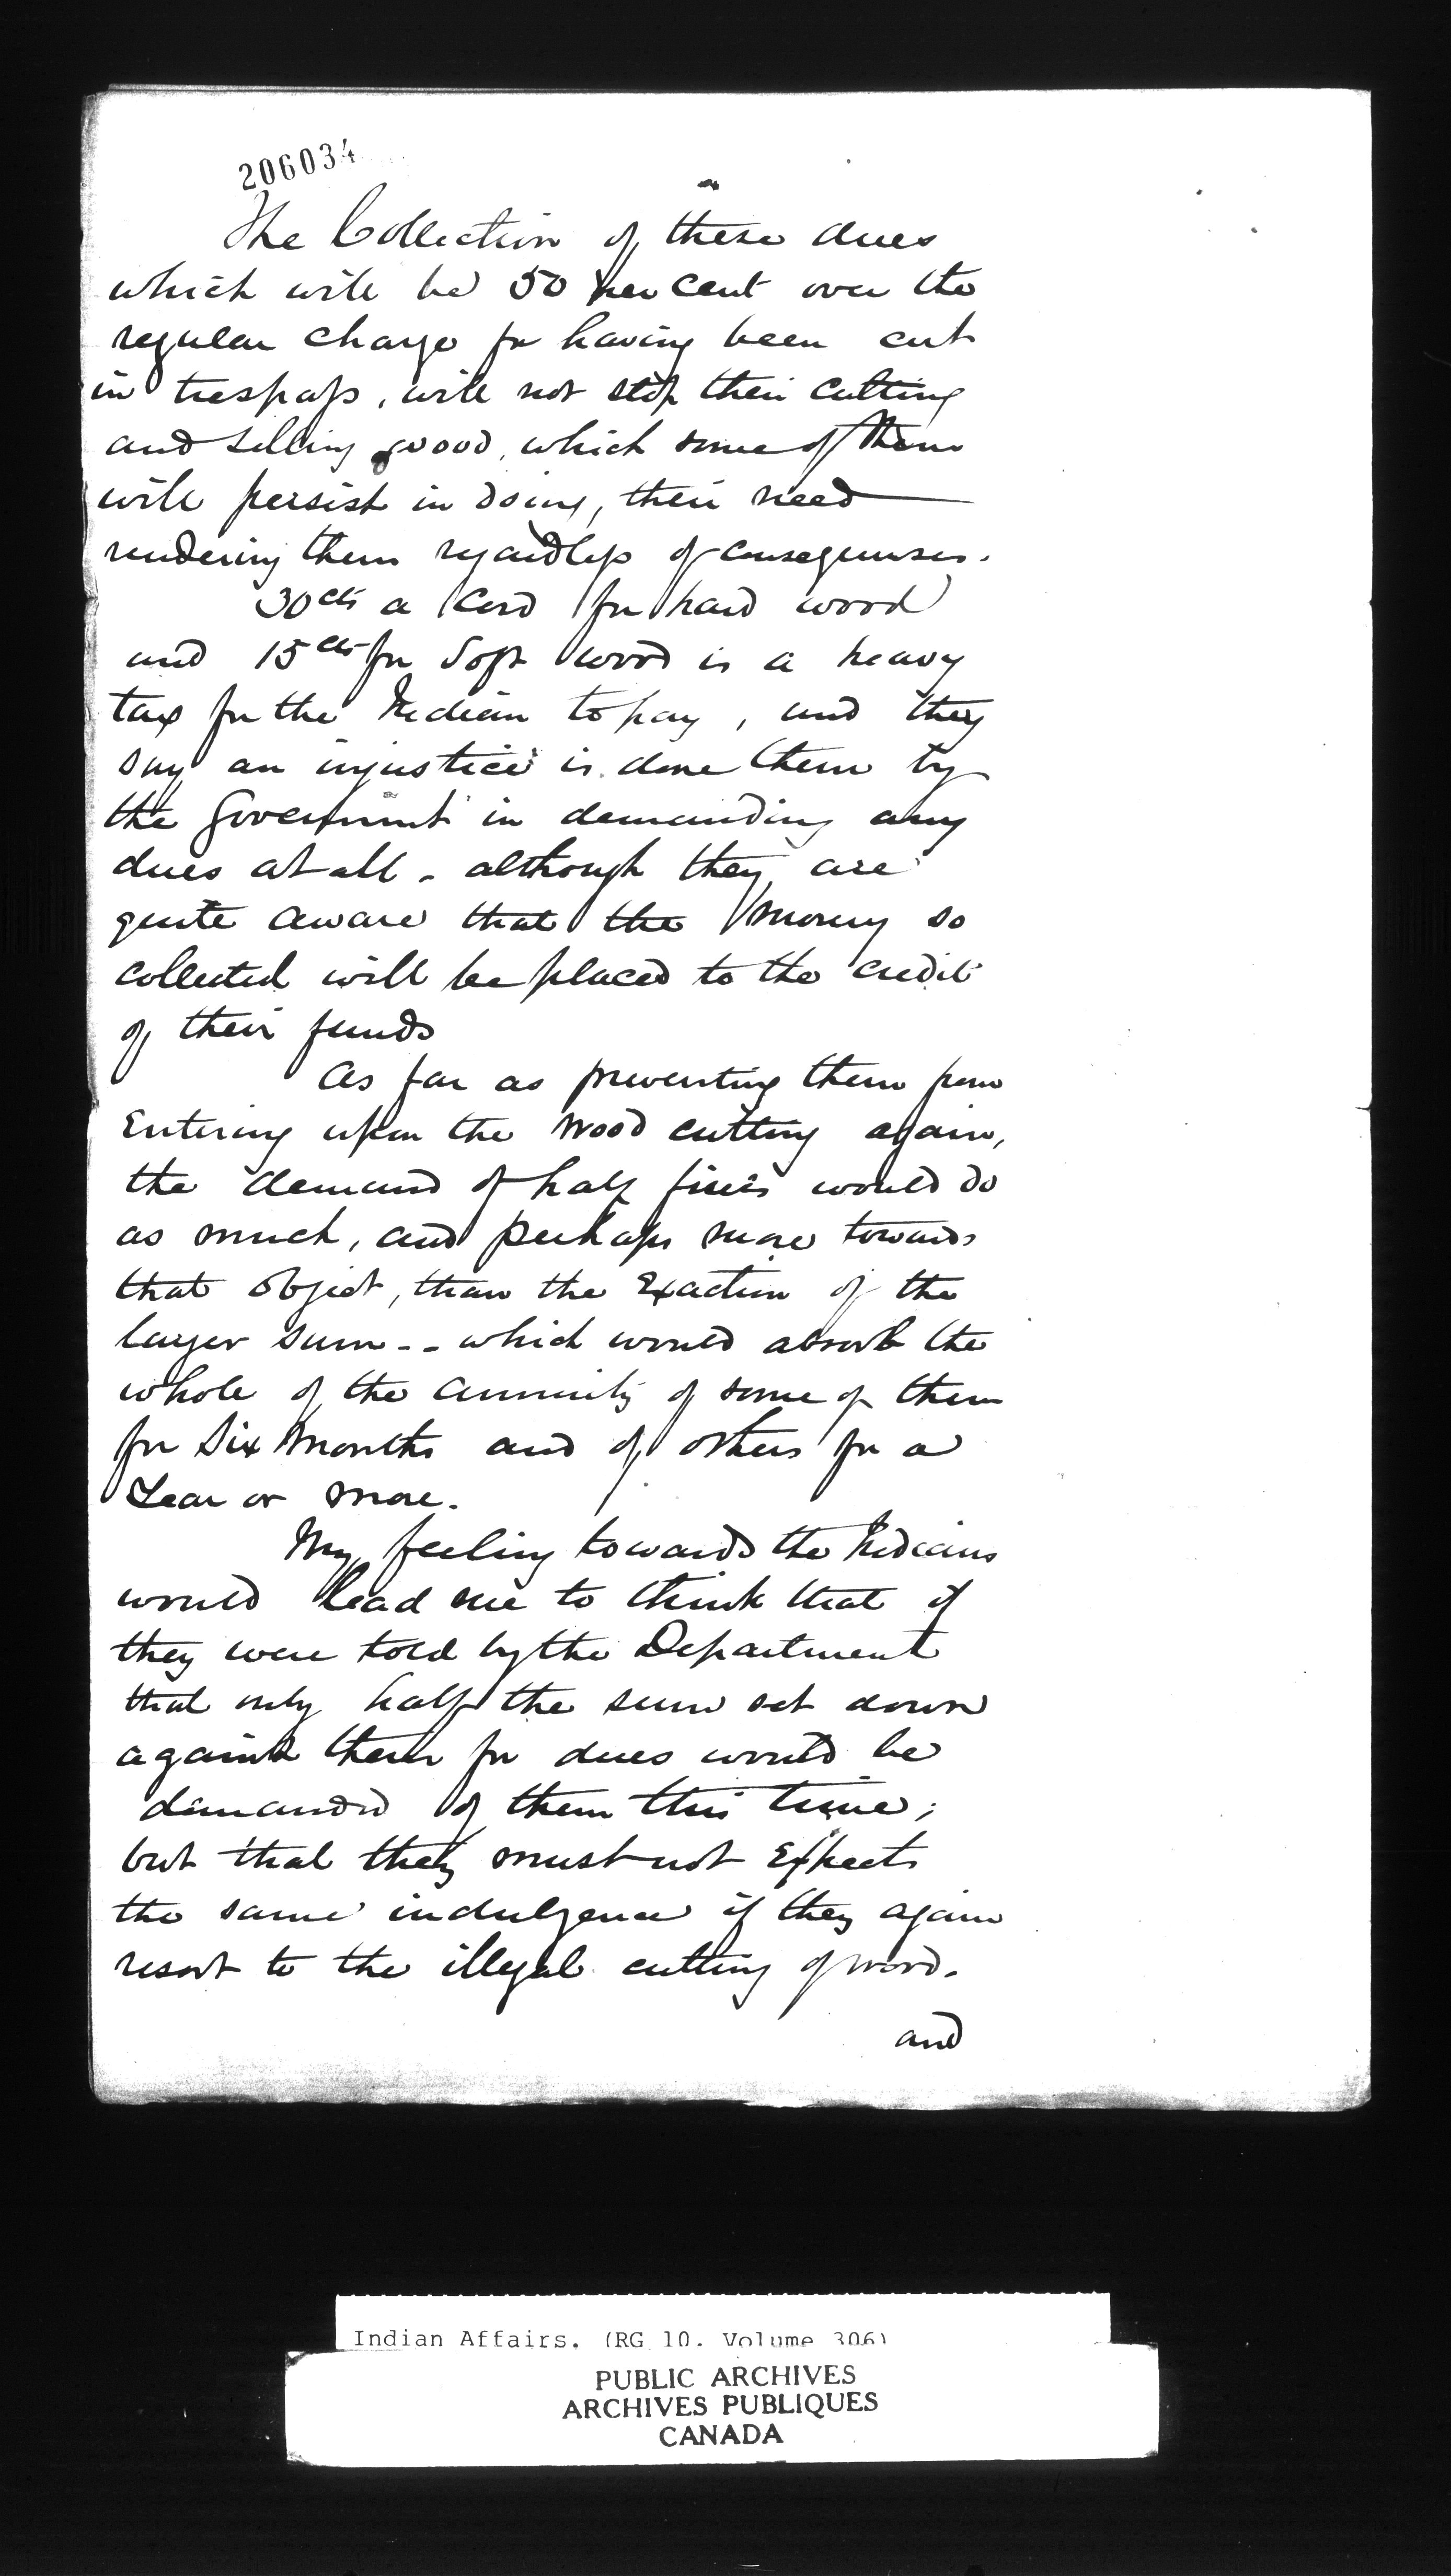 206034
The Collection of these dues
which will be 50 per cent over the
regular charge for having been cut
in trespass, will not stop their cutting
and selling wood, which some of them
will persist in doing, their need
rendering them regardless of consequenses.
30cts a Cord for hard wood
and 15cts for Soft wood is a heavy
tax for the Indian to pay, and they
say an injustice is done them by
the Government in demanding any
dues at all - although they are
quite aware that the money so
collected will be placed to the credit
of their funds
As far as preventing them from
Entering upon the wood cutting again,
the demand of half fines would do
as much, and perhaps more towards
that object, than the Exaction of the
larger sum -- which would absorb the
whole of the annuity of some of them
for Six Months and of others for a
Year or more.
My feeling towards the Indians
would lead me to think that if
they were told by the Department
that only half the sum set down
against them for dues would be
demanded of them this time;
but that they must not Expect
the same indulgence if they again
resort to the illegal cutting of wood.
and
Indian Affairs. (RG 10. Volume 306)
PUBLIC ARCHIVES
ARCHIVES PUBLIQUES
CANADA